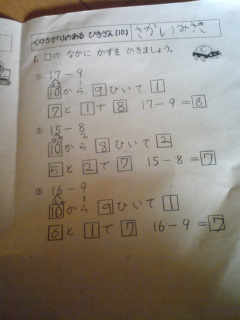 くりさがりのある ひきざん(10) さかい みき
1. □の なかに かずを かきましょう。
① 17-9
10から 9 ひいて 1
7と 1で 8 17-9=8
② 15-8
10から 8 ひいて 2
5と 2で 7 15-8=7
③ 16-9
10から 9 ひいて 1
6と 1で 7 16-9=7